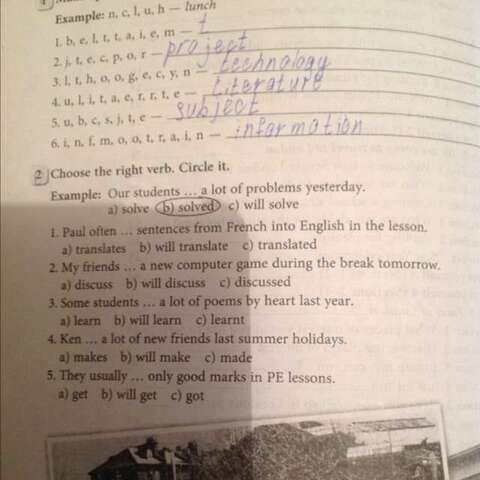 Example: n, c, l, u, h — lunch
1. b, e, l, t, t, a, i, e, m — t
2. j, t, e, c, p, o, r — project
3. l, t, h, o, o, g, e, c, y, n — technology
4. u, l, i, t, a, e, r, r, t, e — Literature
5. u, b, c, s, j, t, e — subject
6. i, n, f, m, o, o, t, r, a, i, n — information
2 Choose the right verb. Circle it.
Example: Our students ... a lot of problems yesterday.
a) solve b) solved c) will solve
1. Paul often ... sentences from French into English in the lesson.
a) translates b) will translate c) translated
2. My friends ... a new computer game during the break tomorrow.
a) discuss b) will discuss c) discussed
3. Some students ... a lot of poems by heart last year.
a) learn b) will learn c) learnt
4. Ken ... a lot of new friends last summer holidays.
a) makes b) will make c) made
5. They usually ... only good marks in PE lessons.
a) get b) will get c) got